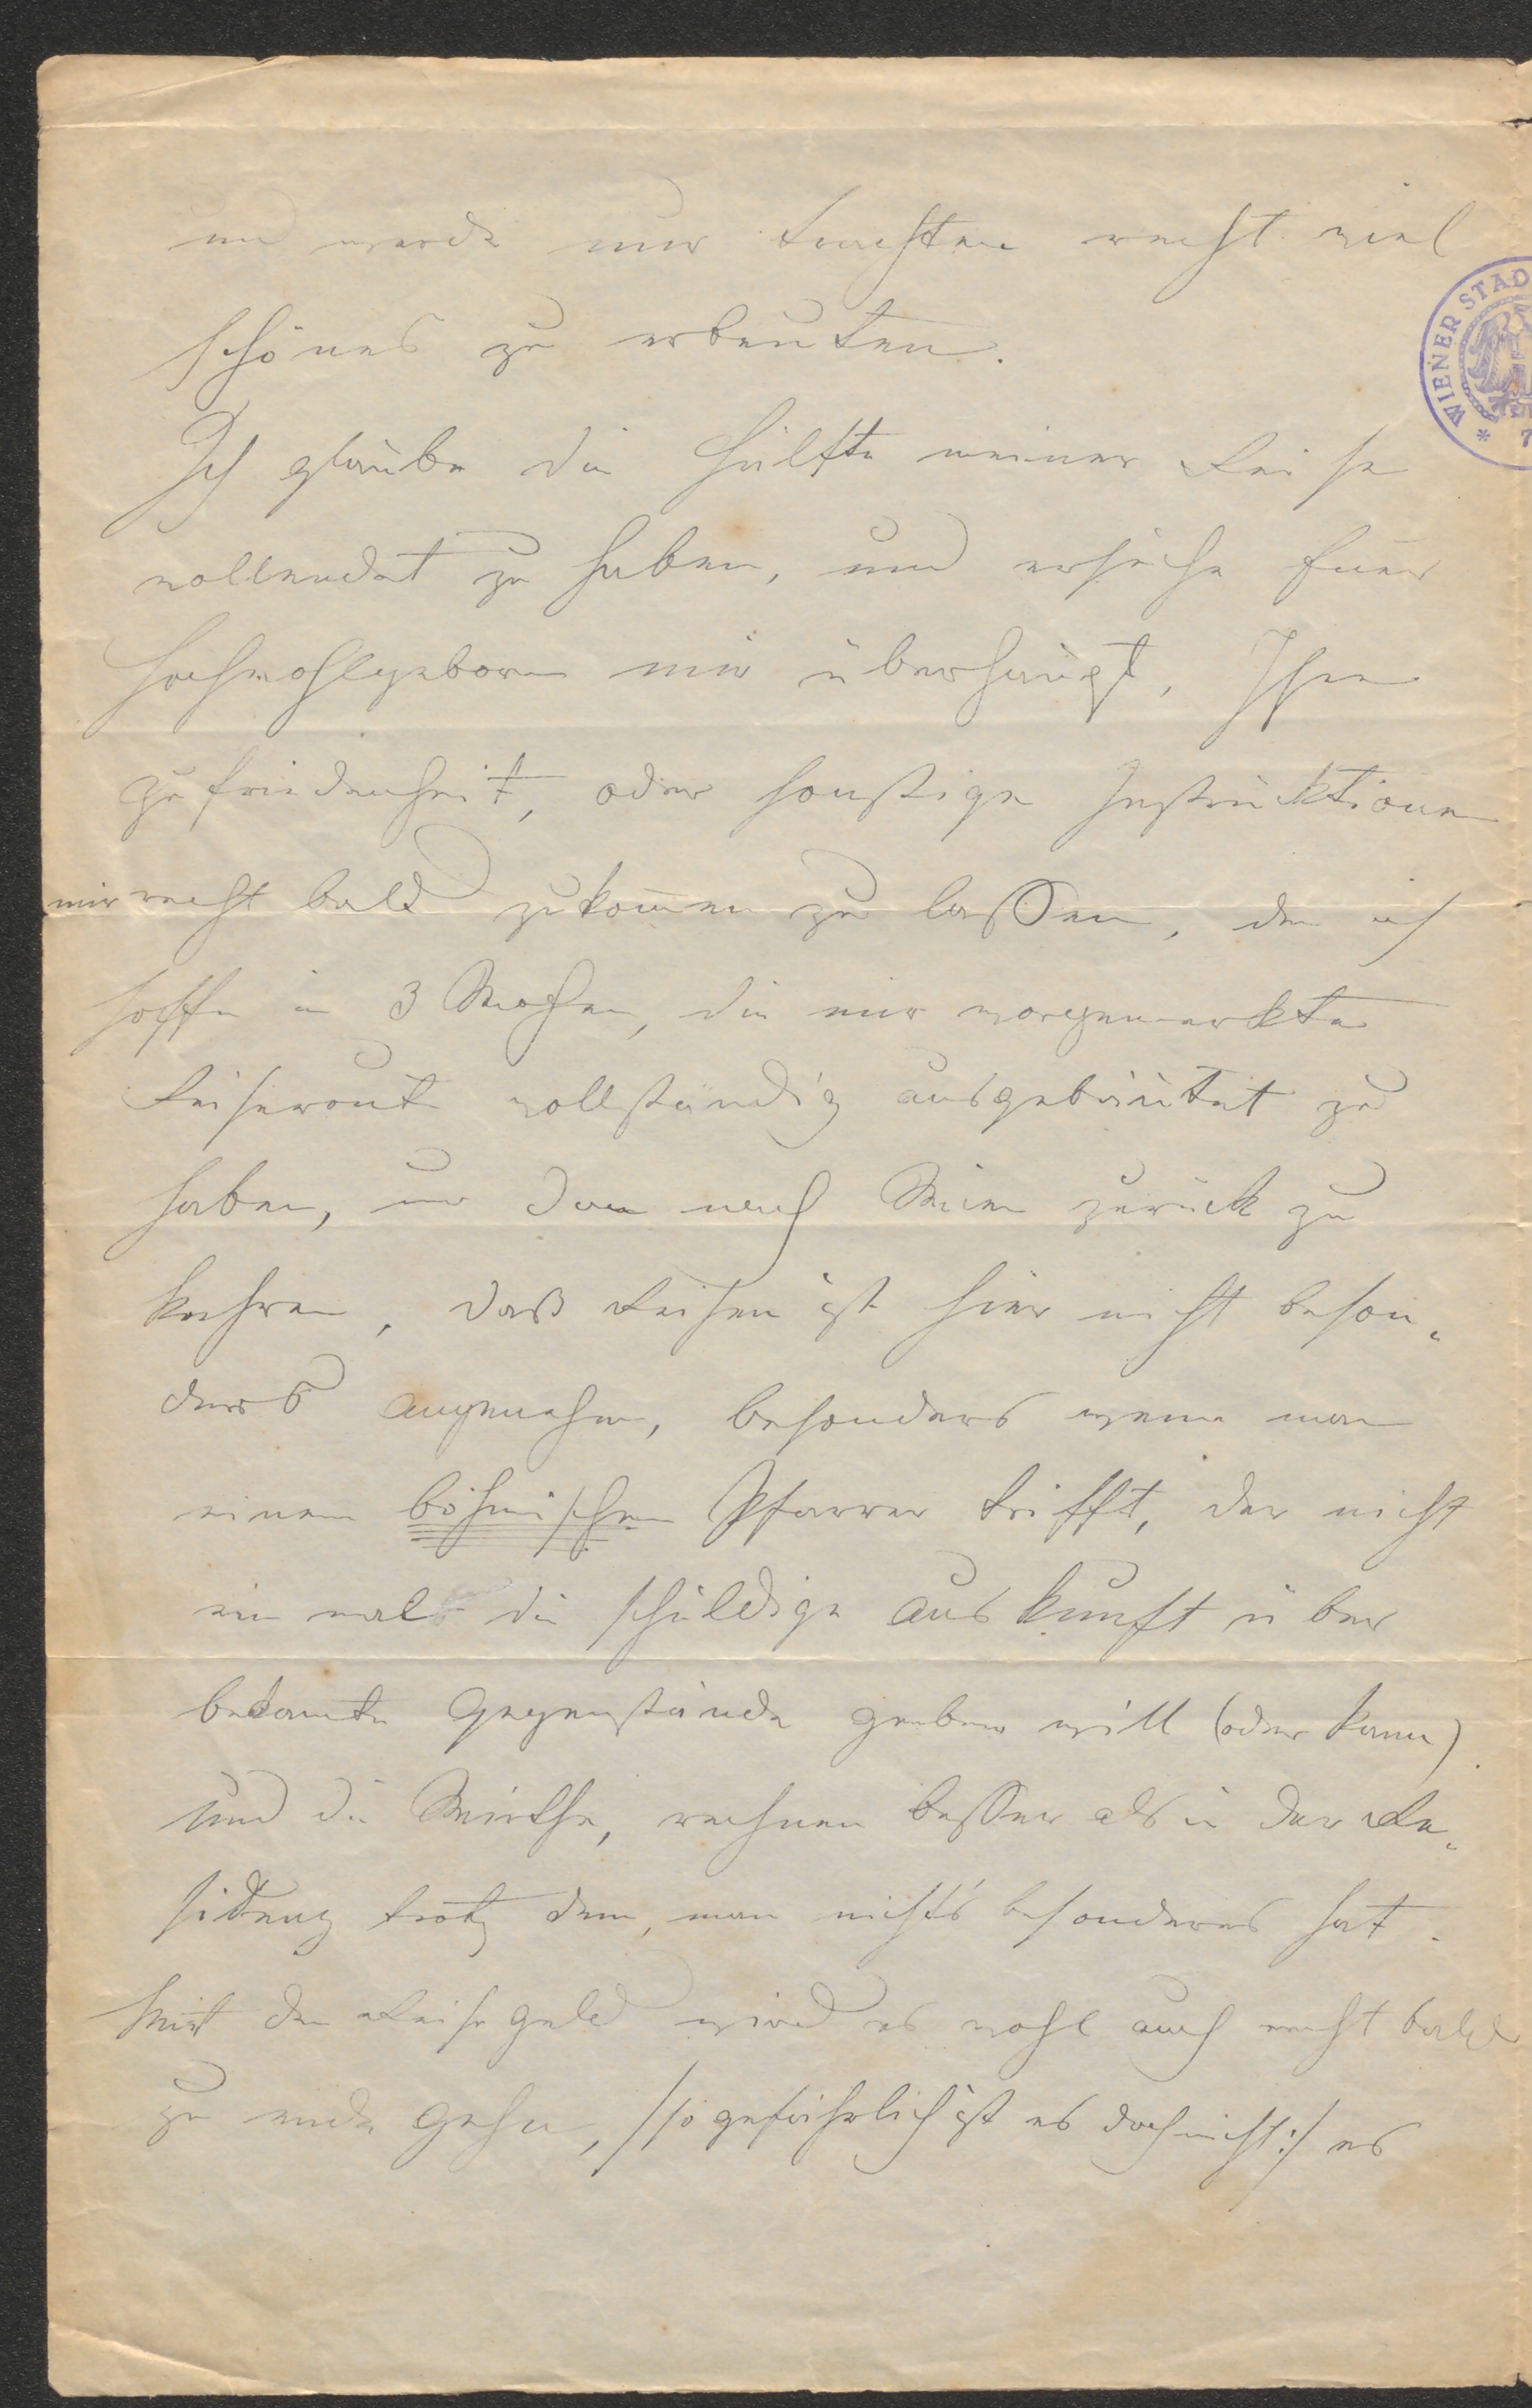 und werde nur trachten recht viel
schönes zu erbeuten.
WIENER STAD
* 7
Ich glaube die Hälfte meiner Reise
vollendet zu haben, und ersuche Euer
Hochwohlgeboren mir überhaupt, Ihre
zufriedenheit, oder sonstige Instruktionen
mir recht bald zukom̄en zu lassen, den ich
hoffe in 3 Wochen, die mir vorgemerkte
Reiseroute vollständig ausgebeutet zu
haben, um dan nach Wien zurück zu
kehren, daß Reisen ist hier nicht beson-
ders angenehm, besonders wenn man
einem böhmischen Pfarrer trifft, der nicht
ein mal die schuldige auskunft über
bekannte Gegenstände geben will (oder kann).
und die Wirthe, rechnen besser als in der Re-
sidenz trotz dem, man nichts besonderes hat.
Mit den Reisegeld wird es wohl auch recht bald
zu ende gehen, /: so gefährlich ist es doch nicht :/ es